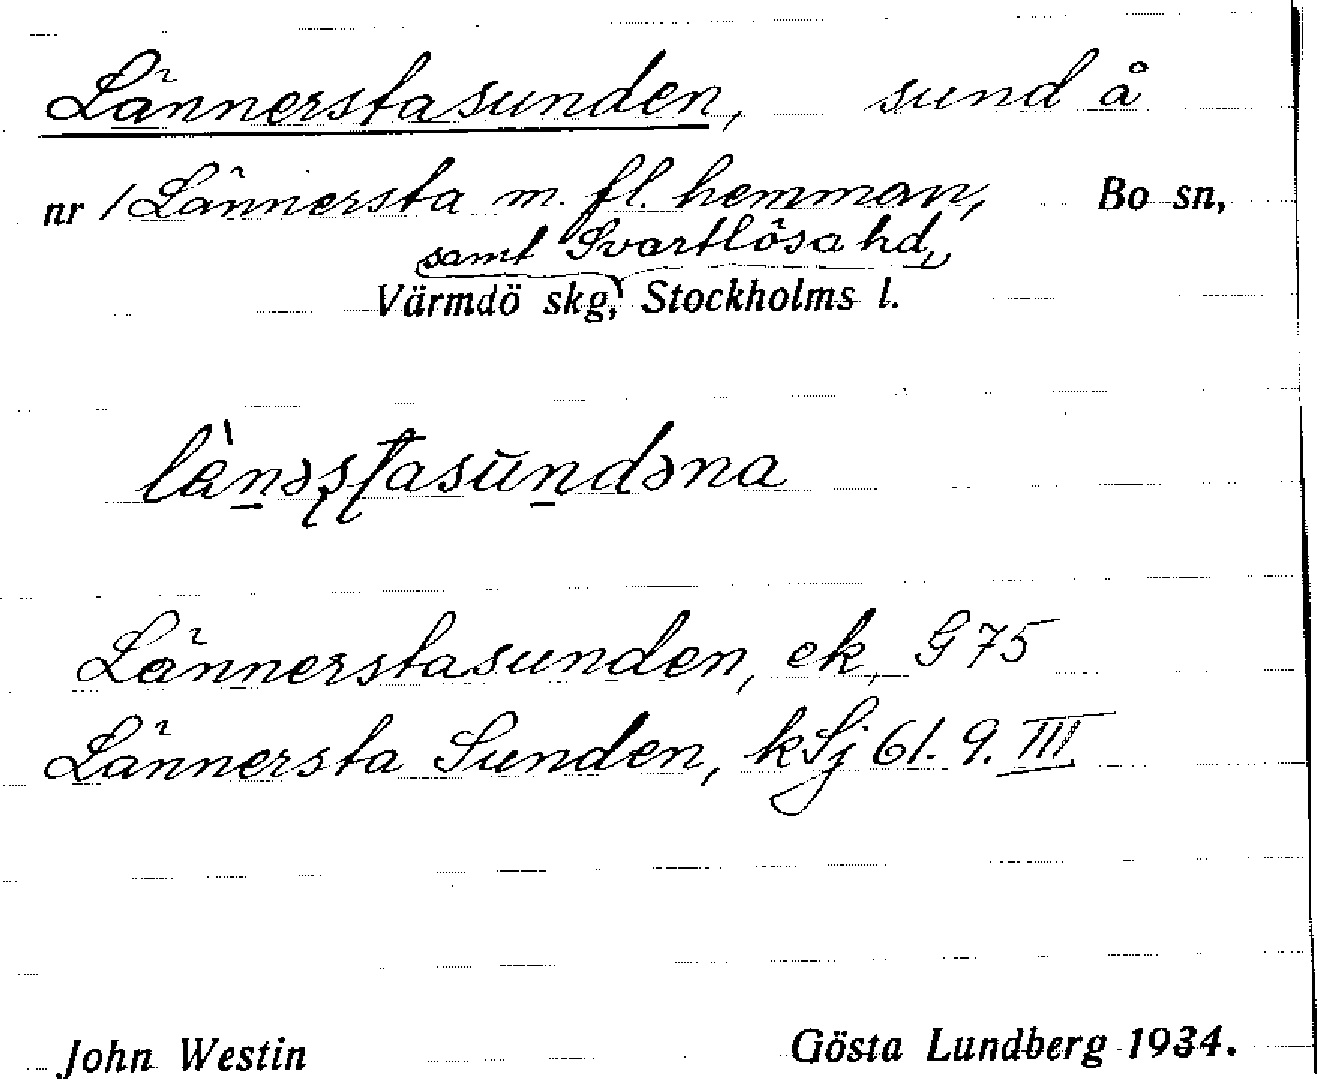 Lännerstasunden, sund å
nr 1 Lännersta m. fl. hemman, Bo sn,
samt Svartlösa hd,
Värmdö skg, Stockholms l.
lä̀nəʂʈasūndəna
Lännerstasunden, ek, G 75
Lännersta Sunden, kSj 61. 9. III
John Westin Gösta Lundberg 1934.